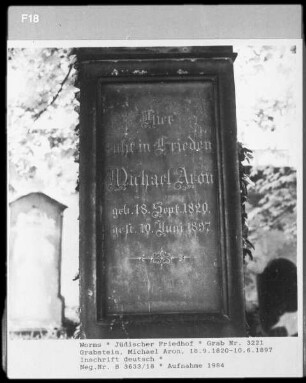 F18
Hier
ruht in Frieden
Michael Aron
geb. 18. Sept. 1820,
gest. 10. Juni 1897.
Worms * Jüdischer Friedhof * Grab Nr. 3221
Grabstein, Michael Aron, 18.9.1820-10.6.1897
Inschrift deutsch *
Neg.Nr. B 3633/18 * Aufnahme 1984